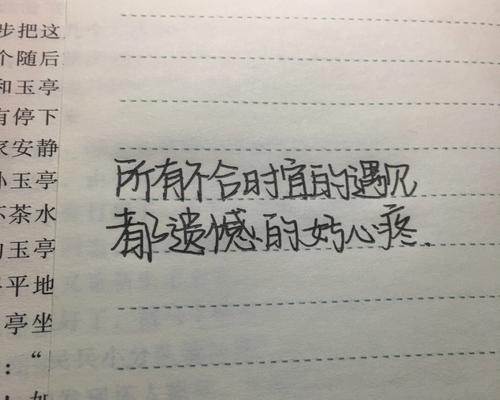 步把这
个随后
和玉亭
有停下
家安静
孙玉亭
茶水
玉亭
平地
亭坐
：“
所有不合时宜的遇见
都遗憾的好心疼.